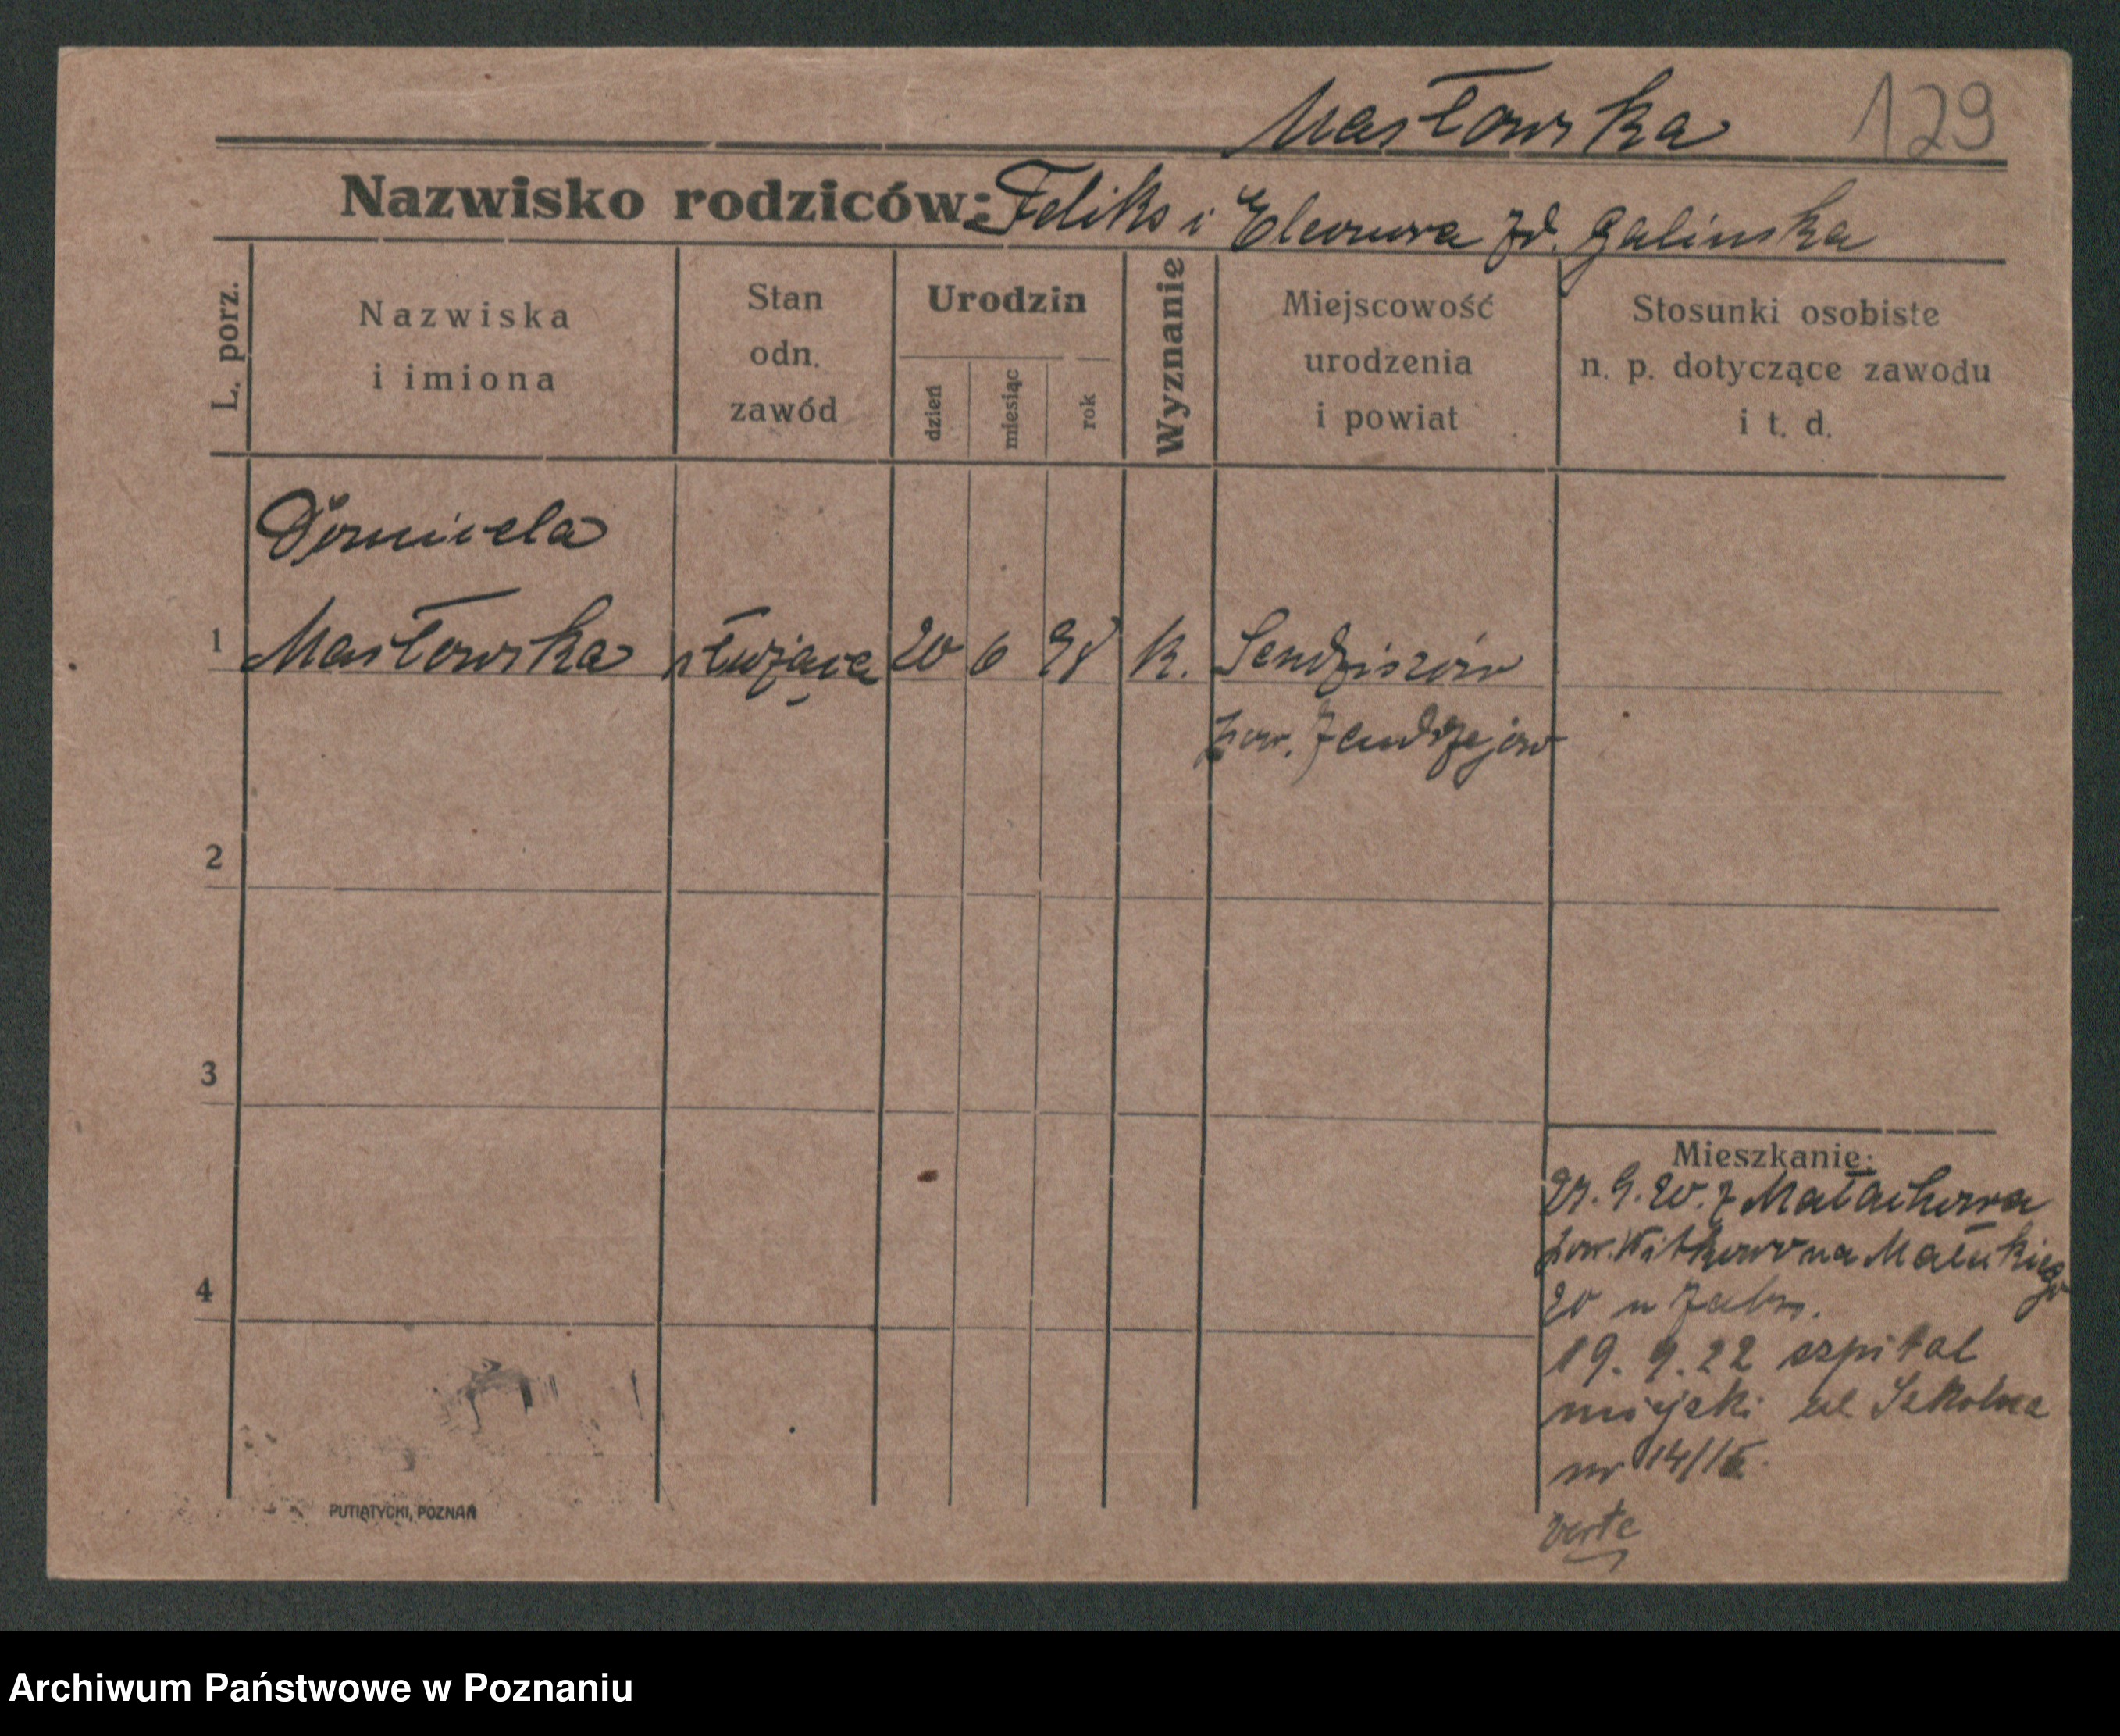 Masłowska 129
Nazwisko rodziców: Feliks i Eleonora zd. Galinska
L. porz.
Nazwiska
i imiona
Stan
odn.
zawód
Urodzin
dzień
miesiąc
rok
Wyznanie
Miejscowość
urodzenia
i powiat
Stosunki osobiste
n. p. dotyczące zawodu
i t. d.
1 Masłowska służąca 20 6 98 k. Sendziszów
pow. Jendrzejow
2
3
4
Mieszkanie:
9. 20. z Małachowa
pow. Witkowo na Małeckiego
20 u
19. 9. 22 szpital
miejski ul Szkolna
nr 14/15.
verte
PUTIATYCKI, POZNAŃ
Archiwum Państwowe w Poznaniu